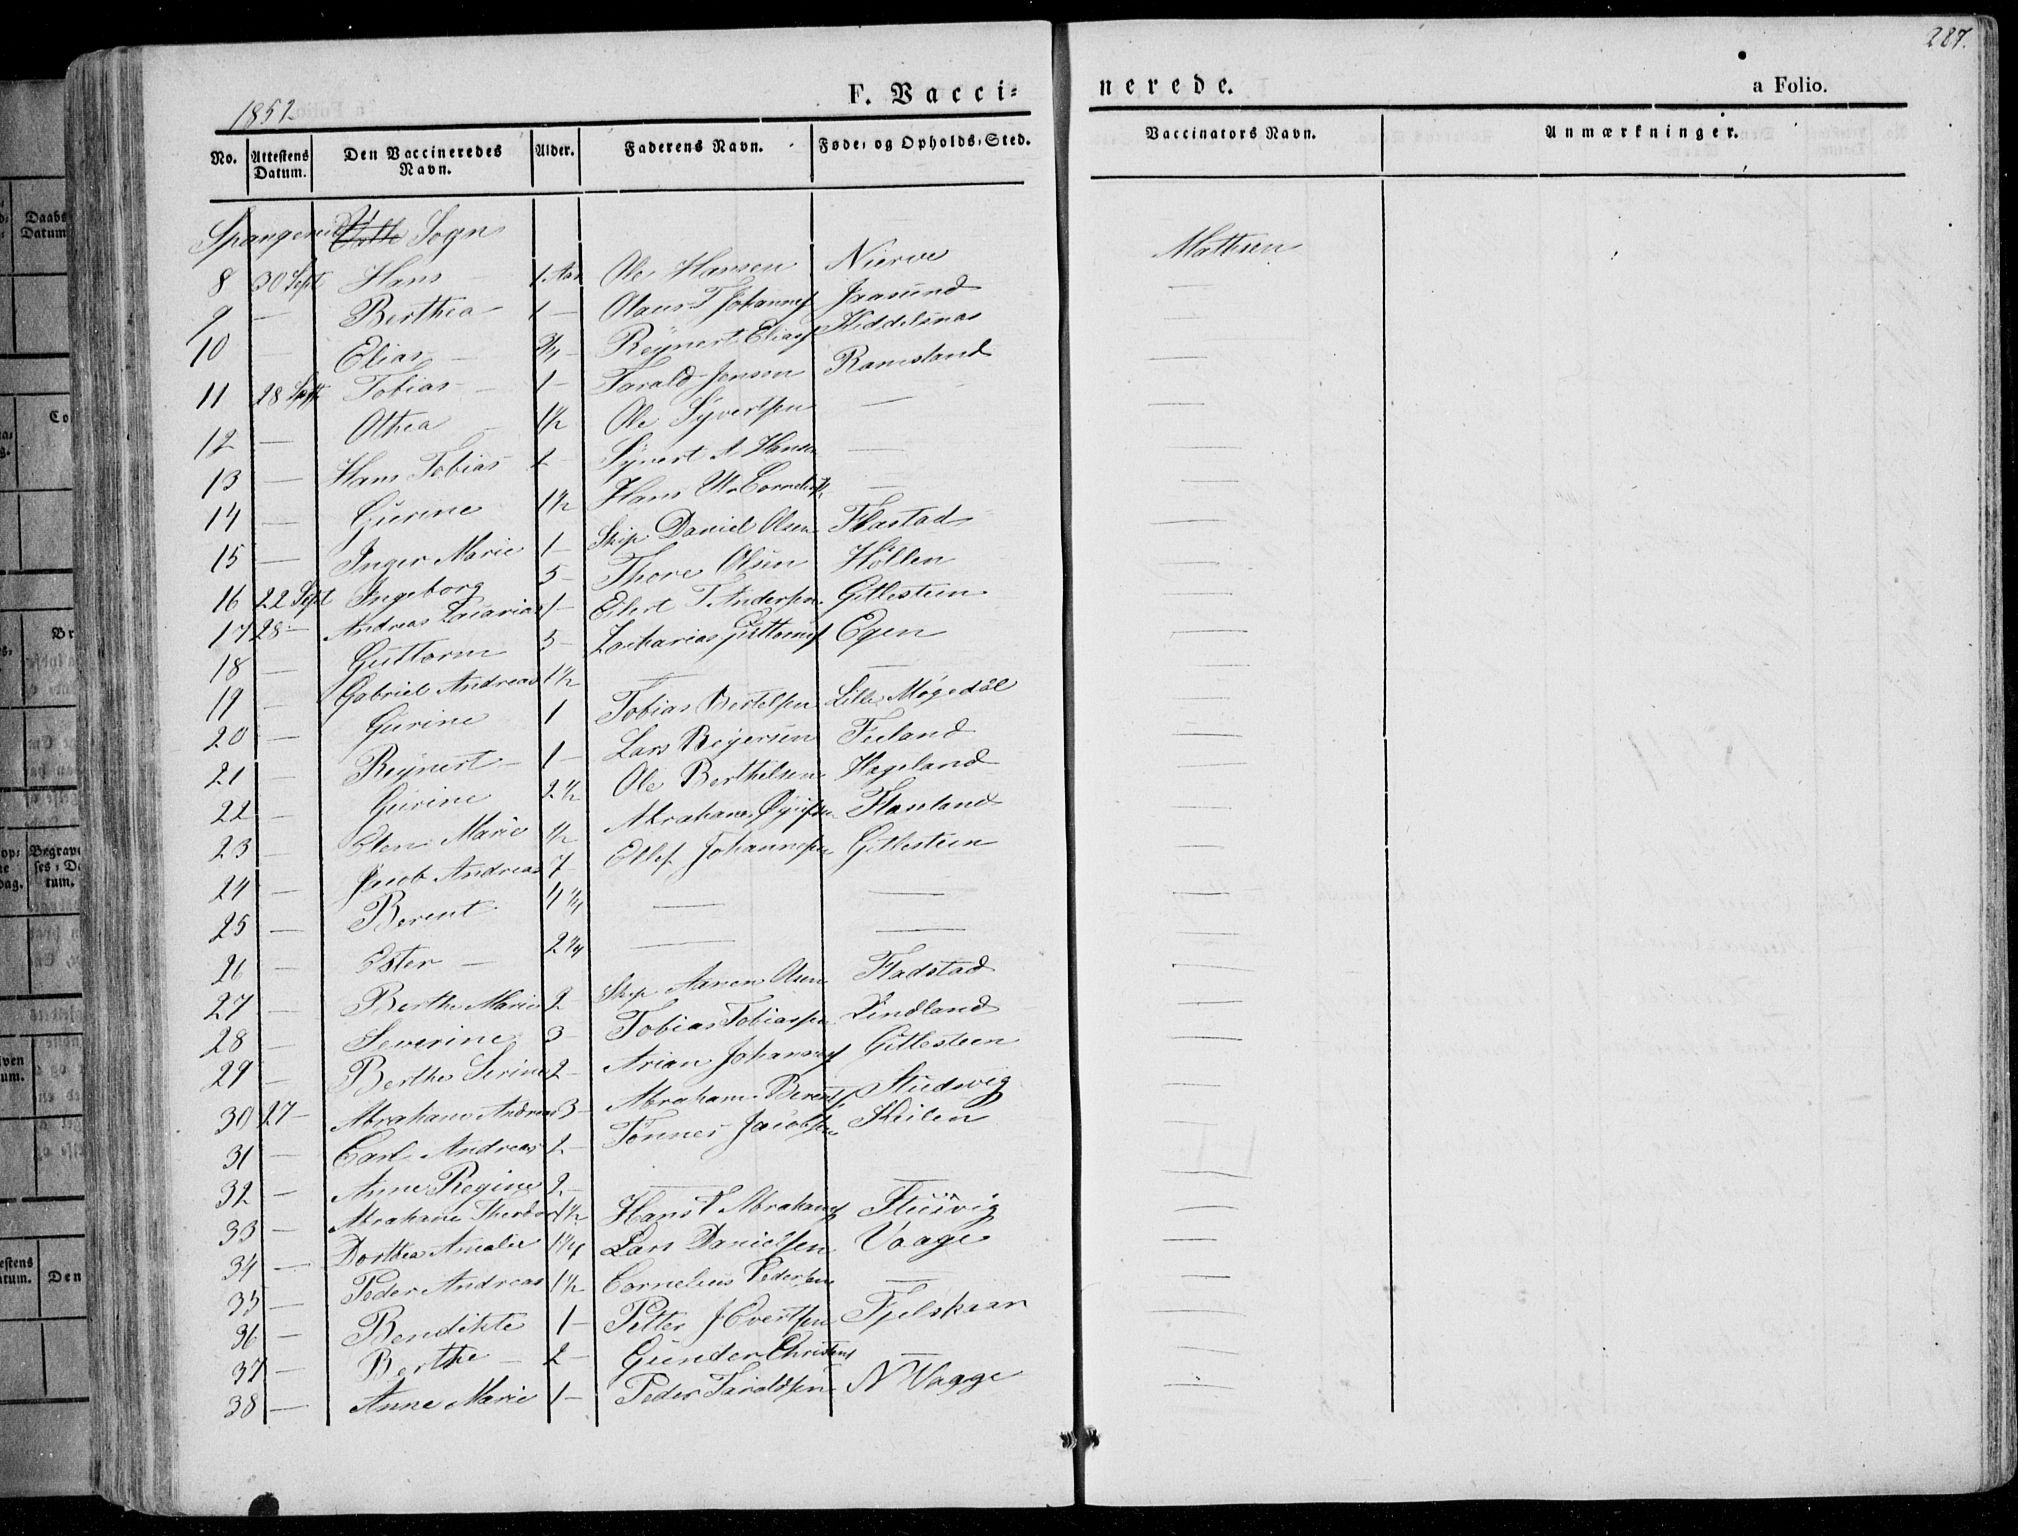 287.
1852
F. Vacci=
nerede.
a Folio.
No. Attestens Datum. Den Vaccineredes Navn. Alder. Faderens Navn. Føde= og Opholds=Sted. Vaccinators Navn. Anmærkninger.
Spangereid Sogn
8 30 Sept Hans 1 Aar Ole Hansen Nierve Mathsen
9 — Berthea 1 — Olaus T Johannes Jaasund —
10 — Elias 3/4 — Reynert Elias —
11 28 Sept Tobias 1 — Tarald Jensen Ramsland —
12 — Othea 1 1/2 Ole Syvertsen — —
13 — Hans Tobias Syvert A Hansen — —
14 — Gurine 1 1/2 Hans — —
15 — Inger Marie 1 — Skip Daniel Olsen Flastad —
16 22 Sept Ingeborg 5 — Thore Olsen Höllen —
17 28 — Andreas Zacarias 1 — Eilert T Andersen Gitlesteen —
18 — Guttorm 5 — Zacharias Guttorms Egen —
19 — Gabriel Andreas 1 1/2 — — —
20 — Gurine 1 Tobias Bertelsen Lille Møgedal —
21 — Reynert — 1 — Lars Reyersen —
22 — Gurine 2 1/2 Ole Berthelsen Hageland —
23 — Elen Marie 1/2 Abraham —
24 — Jacob Andreas 7 Ollef Johannesen Gitlesteen —
25 — Berent 4 1/4 — — —
26 — Ester — 2 1/4 — — —
27 — Berthe Marie 2 — Skip Aanen Olsen Fladstad —
28 — Severine 3 — Tobias Tobiassen Lindland —
29 — Berthe Serine 2 — Arian Johannes Gitlesteen —
30 27 — Abraham Andreas 3 — Abraham Berents Studevig —
31 — Carl Andreas 2 — Tønnes Jacobsen —
32 — Anne Regine 2 — — — —
33 — Abraham 1 1/2 Hans T Abrahams —
34 — Dorthea Amalie 1 1/4 Lars Danielsen Vaage —
35 — Peder Andreas 1 1/2 Cornelius Pedersen — —
36 — Bendikte 1 — Petter J Evertsen Fjelskaar —
37 — Berthe — 2 — Gunder Christens — —
38 — Anne Marie 1 — Peder Taraldsen N Vagge —